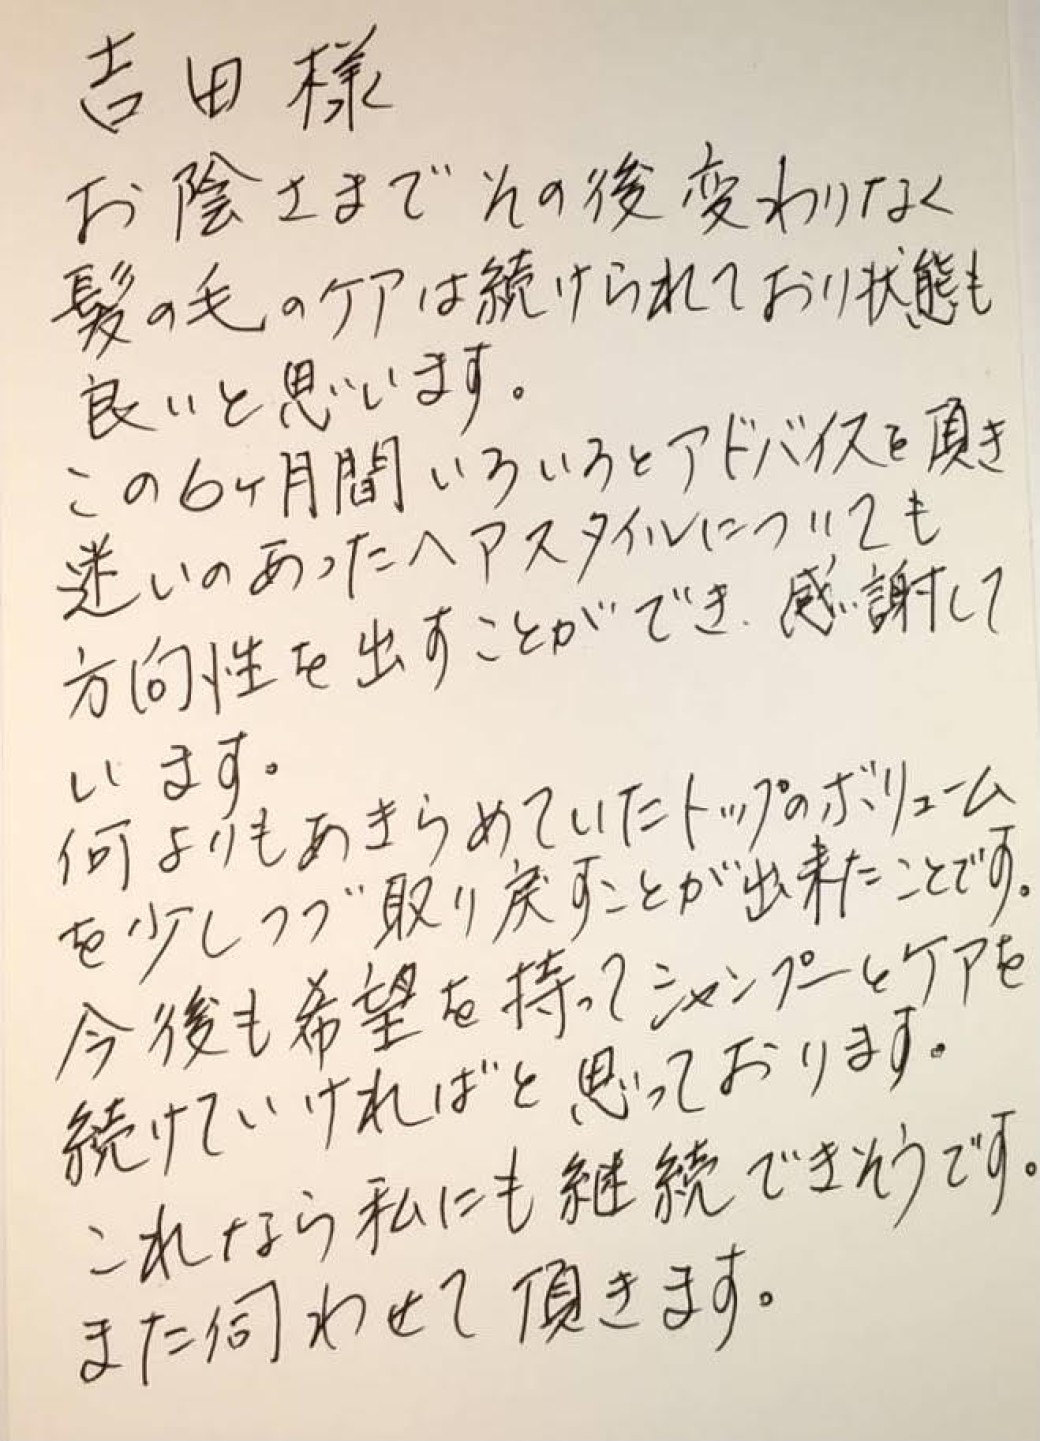 吉田様
お陰さまでその後変わりなく
髪の毛のケアは続けられており状態も
良いと思います。
この6ヶ月間いろいろとアドバイスを頂き
迷いのあったヘアスタイルについても
方向性を出すことができ、感謝して
います。
何よりもあきらめていたトップのボリューム
を少しづつ取り戻すことが出来たことです。
今後も希望を持ってシャンプーとケアを
続けていければと思っております。
これなら私にも継続できそうです。
また伺わせて頂きます。